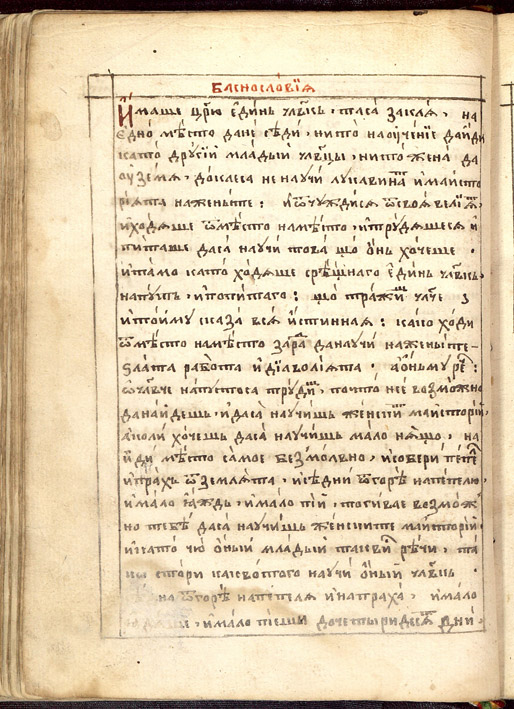 Баснословїѧ
Имаше цр҃ю единь чл҃вкь, та са закле, на
едно мѣсто да не сѣди, нито на оученїе да иди
като другїй младый чл҃вцы, нито жена да
оуземѧ, докле са не научи лукавинаⷮ и майсто
рїѧта на жены те: и ѿчуждисѧ ѿ своѧ велїѧⷮ,
и ходѧше ѿ мѣсто на мѣсто, и трудѧшесѧ и
питаше да са научи това що онь хочеше.
и тамо като ходѧше срѣщна го единь чл҃вкь,
на путь, и попита го: що тражиⷲ чл҃че
и то йму сказа всѧ истинна: како ходи
ѿ мѣсто на мѣсто зараⷣ да научи на жены те
ѕлата работа и дїаволїѧта. а онь му реⷱ:
ѽ чл҃вче напусто са трудиⷲ, почто нее возможно
да найдешь, и да са научишь женскиⷮ майсторїй,
а коли хочешь да са научишь мало нѧщо, на
йди мѣсто самое безмольно, и собери пепеⷧ
и прахь ѿ землѧта, и сѣдни ѿгорѣ на пепелю,
и мало ꙗждь, и мало пїй, тогива е возмож
но тебѣ да са научишь женските майсторїй.
и като чю оный младый такви рѣчи, та
ка стори како в того научи оный чл҃вкь.
на ѿгорѣ на пепелѧ и на праха, и мало
ꙗдѧше, и мало пїеши до четыридесѧⷮ дни,